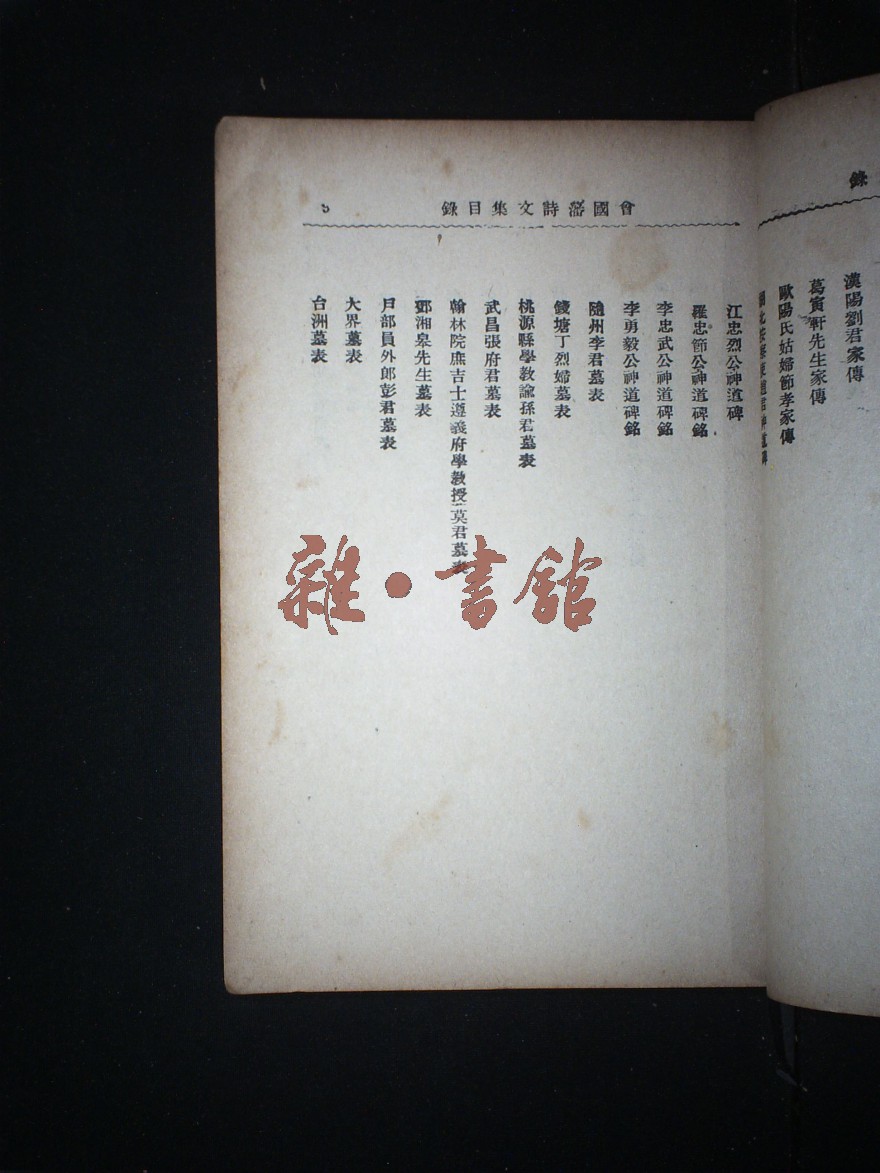 錄
漢陽劉君家傳
葛寅軒先生家傳
歐陽氏姑婦節孝家傳
曾國藩詩文集目錄
江忠烈公神道碑
羅忠節公神道碑銘
李忠武公神道碑銘
李勇毅公神道碑銘
隨州李君墓表
錢塘丁烈婦墓表
桃源縣學教諭孫君墓表
武昌張府君墓表
翰林院庶吉士遵義府學教授莫君墓表
鄧湘皋先生墓表
戶部員外郎彭君墓表
大界墓表
台洲墓表
雜·書館